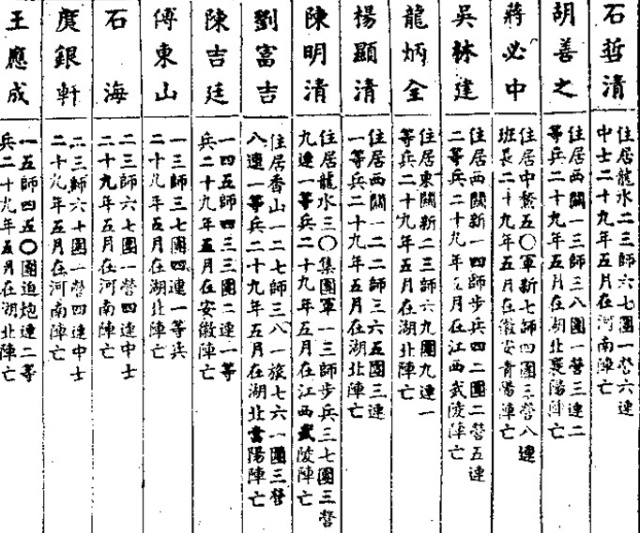 石哲清
住居龍水二三師六七團一營六連
中士二十九年五月在河南陣亡
胡善之
住居西關一三師三八團一營三連二
等兵二十九年五月在湖北襄陽陣亡
蔣必中
住居中鰲五〇軍新七師四團三營八連
班長二十九年五月在徽安青陽陣亡
吳林建
住居西關新一四師步兵四二團二營五連
二等兵二十九年五月在江西武陵陣亡
龍炳全
住居東關新二三師六九團九連一
等兵二十九年五月在湖北陣亡
楊顯清
住居西關一二二師三六五團三連
一等兵二十九年五月在湖北陣亡
陳明清
住居龍水三〇集團軍一三師步兵三七團三營
九連一等兵二十九年五月在江西武陵陣亡
劉富吉
住居香山一二七師三八一旅七六一團三營
八連一等兵二十九年五月在湖北當陽陣亡
陳吉廷
一四五師四三三團二連一等
兵二十九年五月在安徽陣亡
傅東山
一三師三七團四連一等兵
二十九年五月在湖北陣亡
石海
二三師六七團一營四連中士
二十九年五月在河南陣亡
度銀軒
二三師六七團一營四連中士
二十九年五月在河南陣亡
王應成
一五師四五〇團迫炮連二等
兵二十九年五月在湖北陣亡